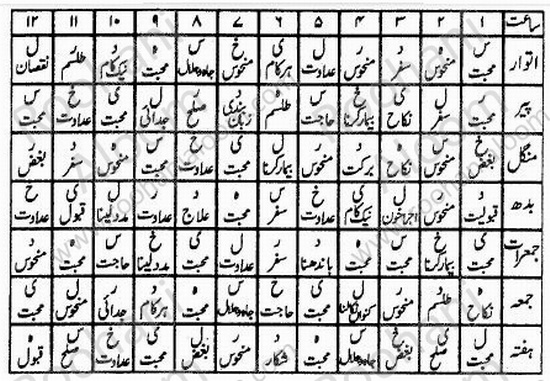 ساعت ۱ ۲ ۳ ۴ ۵ ۶ ۷ ۸ ۹ ۱۰ ۱۱ ۱۲
س ہ د ر ل ی خ س ہ د ر ل
اتوار محبت منحوس سفر منحوس عداوت ہرکام منحوس جاہ و جلال محبت نیک کام طلسم نقصان
ر ل ی خ س ہ د ر ل ی خ س
پیر محبت سفر نکاح بیمارکرنا حاجت طلسم زبان بندی صلح جدائی محبت عداوت محبت
خ س ہ د ر ل ی خ س ہ د ر
منگل بغض منحوس نکاح برکت منحوس بیمارکرنا محبت عداوت محبت منحوس سفر بغض
د ر ل ی خ س ہ د ر ل ی خ
بدھ قبولیت منحوس اجراخون نیک کام عداوت سفر محبت علاج عداوت مددلینا قبولی عداوت
ی خ س ہ د ر ل ی خ س ہ د
جمعرات محبت بیمارکرنا محبت محبت باندھنا سفر عداوت محبت مددلینا حاجت محبت منحوس
ہ د ر ل ی خ س ہ د ر ل ی
جمعہ نکاح طلسم منحوس کنواں نکالنا محبت حاجت جاہ و جلال محبت ہرکام جدائی منحوس محبت
ل ی خ س ہ د ر ل ی خ س ہ
ہفتہ محبت صلح بغض جاہ و جلال محبت شکار منحوس بغض محبت عداوت صلح قبول